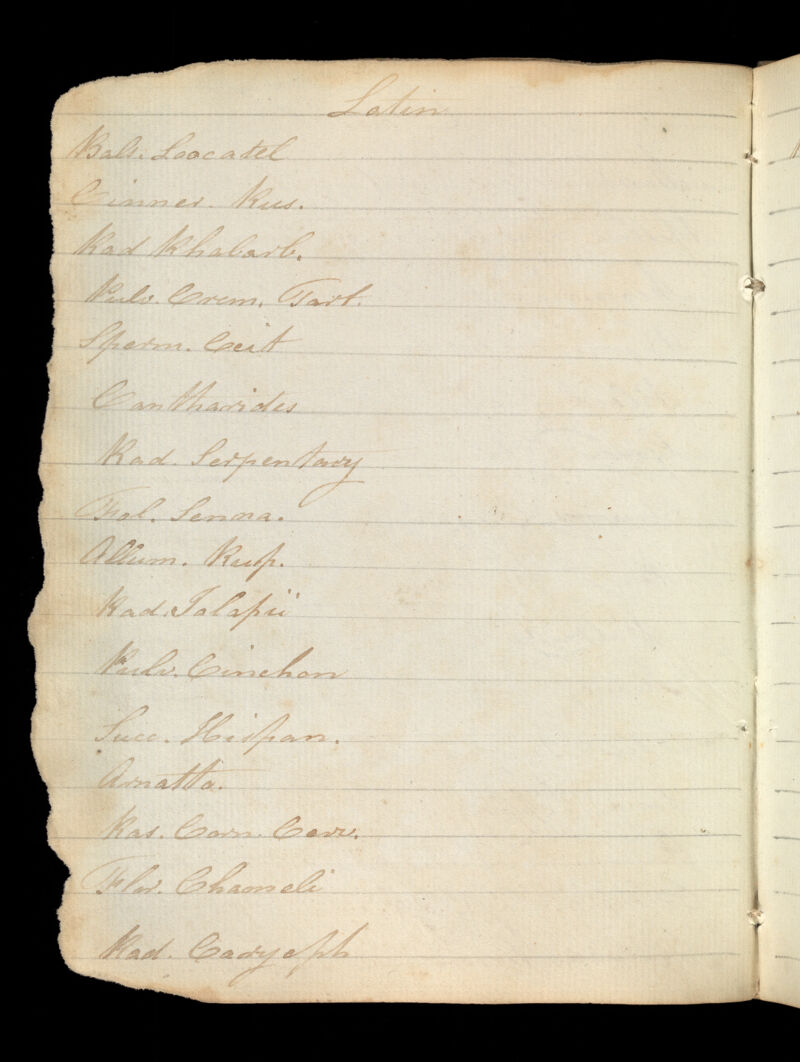 Latin
Bals. Loocatel
Cinner. Rus.
Rad Rhabarb.
Pulv. Crem. Tart.
Sperm. Ceit
Cantharides
Rad. Serpentary
Fol. Senna.
Allum. Rup.
Rad. Jalapii
Pulv. Cinchon
Succ. Hispan.
Arnatta.
Ras. Corn. Cerv.
Flor. Chameli
Rad. Caryoph